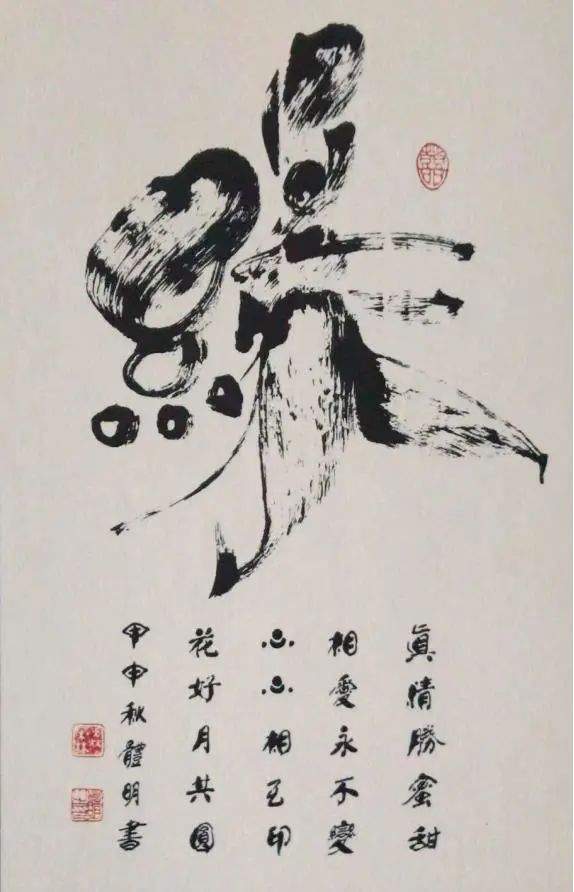 緣
眞情勝蜜甜
相愛永不變
心心相互印
花好月共圓
甲申秋體明書